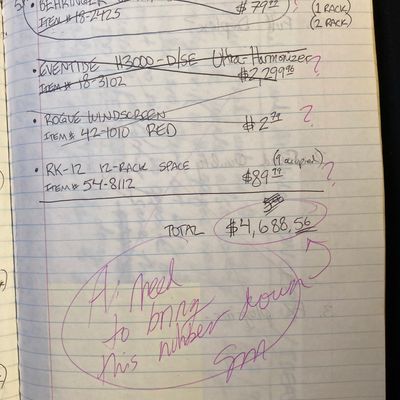 • BEHRINGER
ITEM # 18-2425 $79.99 (1 RACK)
(2 RACK)
• EVENTIDE H3000-D/SE Ultra-Harmonizer ?
ITEM # 18-3102 $2,299.96
• ROGUE WINDSCREEN
ITEM # 42-1010 RED $2.79 ?
• RK-12 12-RACK SPACE (9 occupied) ?
ITEM # 54-8112 $89.99
TOTAL $4,688.56
need
to bring
this number down